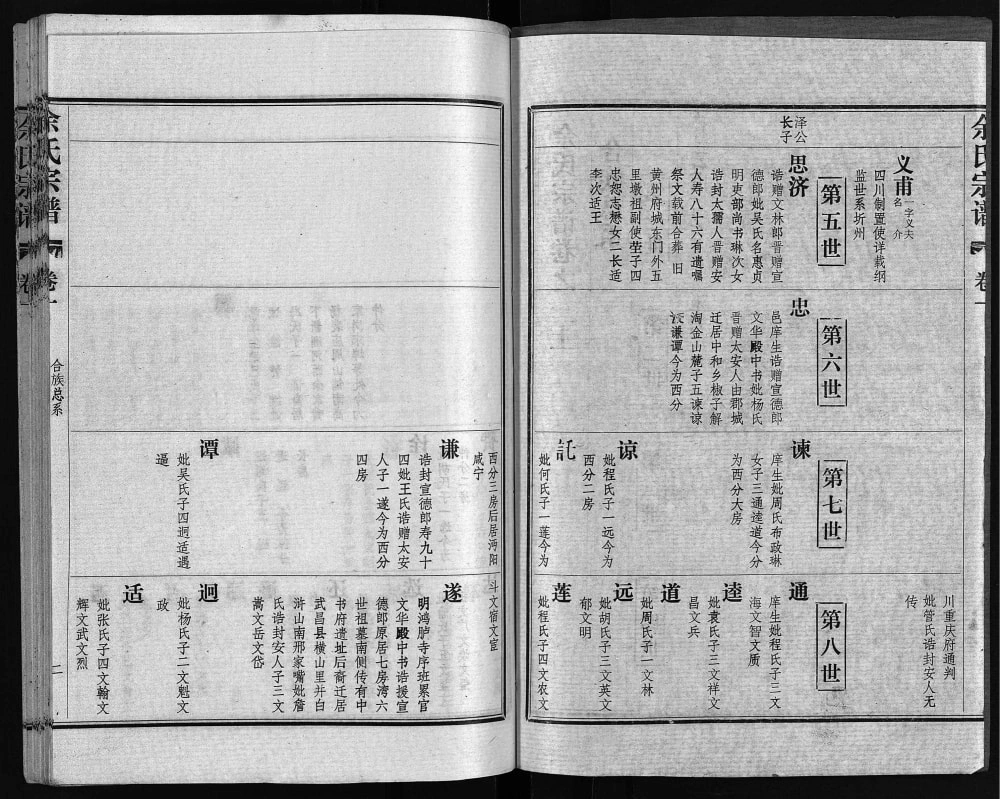 余氏宗谱
卷一
义甫
一字义夫
名介
四川制置使详载纲
监世系圻州
第五世
泽公
长子
思济
诰赠文林郎晋赠宣
德郎妣吴氏名惠贞
明吏部尚书琳次女
诰封太孺人晋赠安
人寿八十六有遗嘱
祭文载前合葬 旧
黄州府城东门外五
里墩祖副使茔子四
忠恕志懋女二长适
李次适王
第六世
忠
邑庠生诰赠宣德郎
文华殿中书妣杨氏
晋赠太安人由郡城
迁居中和乡椒子解
淘金山麓子五谏谅
谦谭今为西分
第七世
谏
庠生妣周氏布政琳
女子三通逵道今分
为西分大房
谅
妣程氏子一远今为
西分二房
託
妣何氏子一莲今为
川重庆府通判
妣管氏诰封安人无
传
第八世
通
庠生妣程氏子三文
海文智文质
逵
妣袁氏子三文祥文
昌文兵
道
妣周氏子一文林
远
妣胡氏子三文英文
郁文明
莲
妣程氏子四文农文
余氏宗谱
卷一
合族总系
二
西分三房后居沔阳
咸宁
谦
诰封宣德郎寿九十
四妣王氏诰赠太安
人子一遂今为西分
四房
谭
妣吴氏子四迥适遇
逼
斗文宿文宣
遂
明鸿胪寺序班累官
文华殿中书诰援宣
德郎原居七房湾六
世祖墓南侧传有中
书府遗址后裔迁居
武昌县横山里并白
浒山南邢家嘴妣詹
氏诰封安人子三文
嵩文岳文岱
迥
妣杨氏子二文魁文
政
适
妣张氏子四文翰文
辉文武文烈